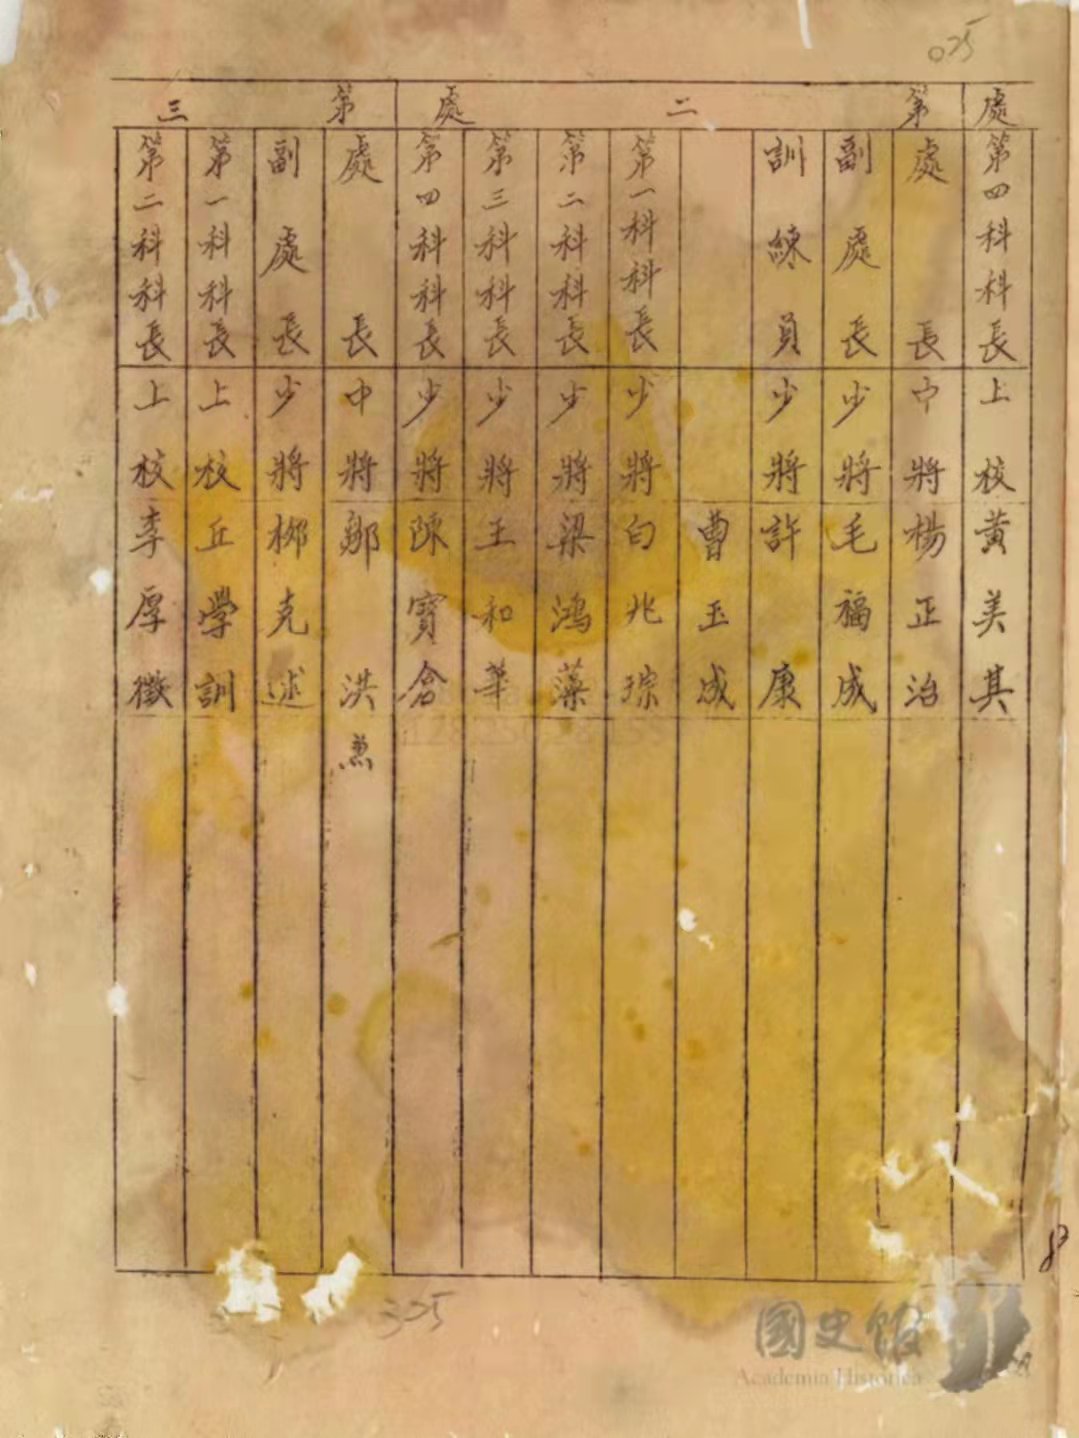 025
處
第四科科長 上校 黃美其
第二處
處長 中將 楊正治
副處長 少將 毛福成
訓練員 少將 許康
曹玉成
第一科科長 少將 白兆琮
第二科科長 少將 梁鴻藻
第三科科長 少將 王和華
第四科科長 少將 陳寶倉
第三
處長 中將 鄒洪 兼
副處長 少將 柳克述
第一科科長 上校 丘學訓
第二科科長 上校 李厚徵
8
305
國史館
Academia Historica